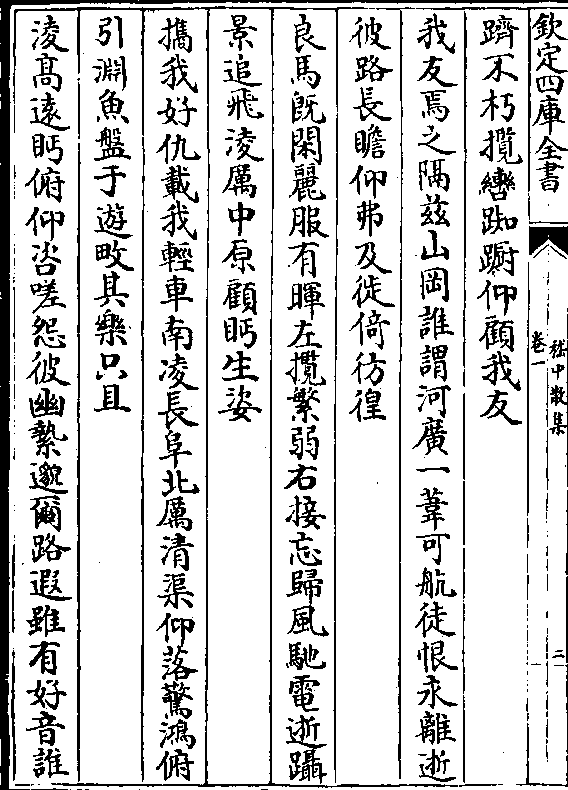 欽定四庫全書
嵇中散集
卷一
二
躋不朽攬轡踟蹰仰顧我友
我友焉之隔兹山岡誰謂河廣一葦可航徒恨永離逝
彼路長瞻仰弗及徙倚彷徨
良馬既閑麗服有暉左攬繁弱右接忘歸風馳電逝躡
景追飛淩厲中原顧眄生姿
攜我好仇載我輕車南凌長阜北厲清渠仰落驚鴻俯
引淵魚盤于遊畋其樂只且
淩高遠眄俯仰咨嗟怨彼幽縶邈爾路遐雖有好音誰